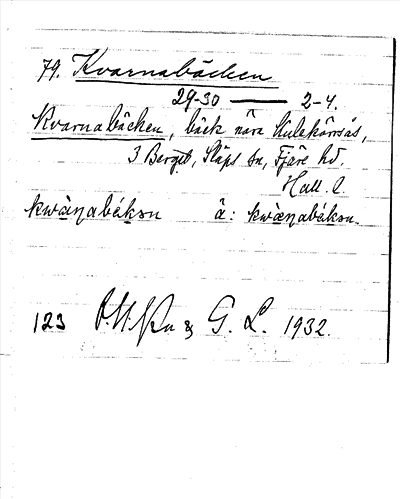 79. Kvarnabäcken
29-30 — 2-4.
Kvarnabäcken, bäck nära
3 Berget, Släps sn, Fjäre hd.
Hall. l.
kwànabáksn å: kwànabáksn.
123 & G. L. 1932.